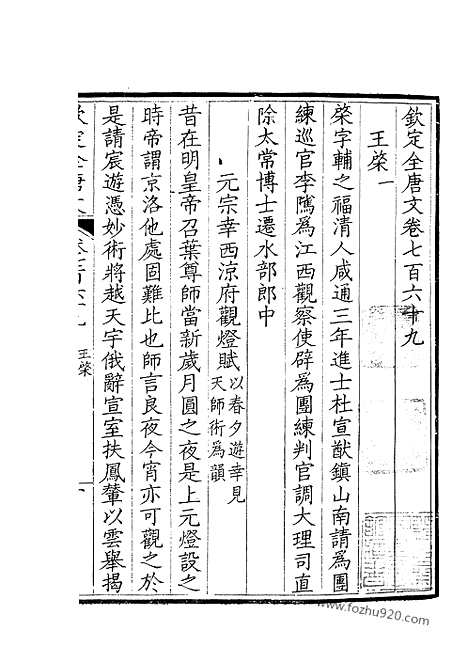 欽定全唐文卷七百六十九
王棨一
棨字輔之福清人咸通三年進士杜宣猷鎮山南請爲團
練巡官李隲爲江西觀察使辟爲團練判官調大理司直
除太常博士遷水部郎中
元宗幸西涼府觀燈賦
以春夕遊幸見
天師術爲韻
昔在明皇帝召葉尊師當新歲月圓之夜是上元燈設之
時帝謂京洛他處固難比也師言良夜今宵亦可觀之於
是請宸遊憑妙術將越天宇俄辭宣室扶鳳輦以雲舉揭
王棨
www.fozhu920.com